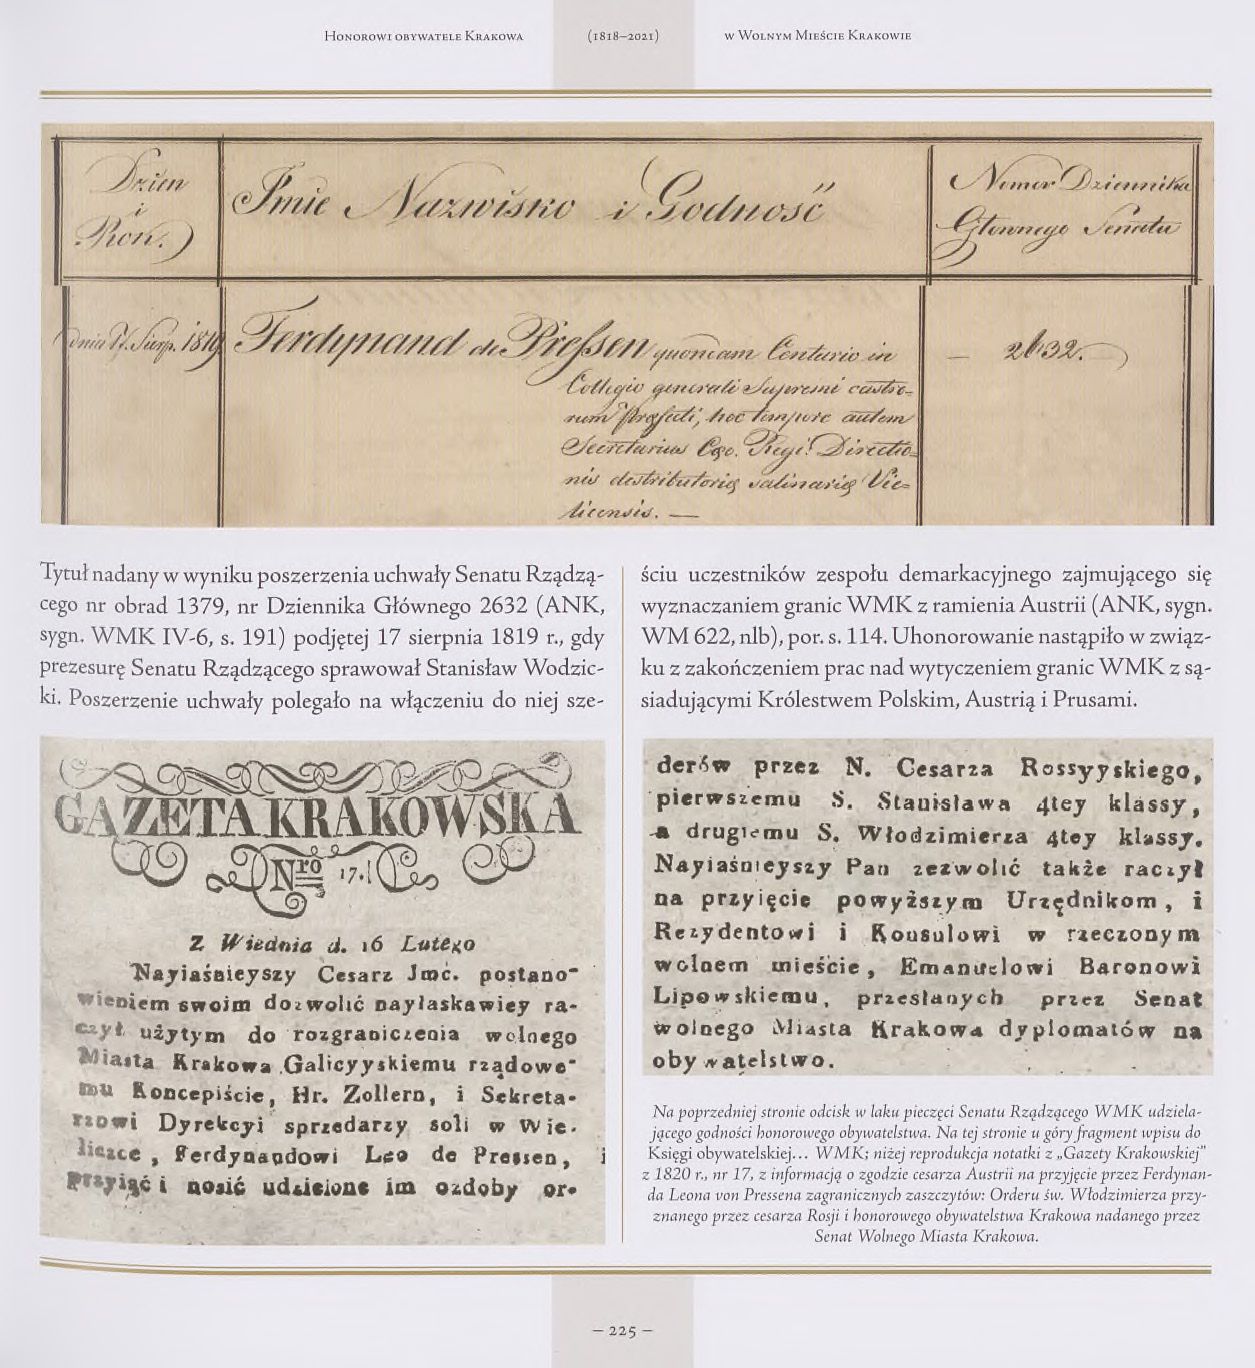 Honorowi obywatele Krakowa (1818–2021) w Wolnym Mieście Krakowie
Dzien
i
Rok.
Jmie Nazwisko i Godność
Numer Dziennika
Głownego Senatu
dnia 17. Sierp. 1819
Ferdynand de Pressen quoniam Centurio in
Collegio generali Supremi castro-
rum Præfecti, hoc tempore autem
Secretarius Cæs. Regi. Directio-
nis distributoriæ salinariæ Vie-
licensis. —
— 2632.
Tytuł nadany w wyniku poszerzenia uchwały Senatu Rządzą-
cego nr obrad 1379, nr Dziennika Głównego 2632 (ANK,
sygn. WMK IV-6, s. 191) podjętej 17 sierpnia 1819 r., gdy
prezesurę Senatu Rządzącego sprawował Stanisław Wodzic-
ki. Poszerzenie uchwały polegało na włączeniu do niej sze-
ściu uczestników zespołu demarkacyjnego zajmującego się
wyznaczaniem granic WMK z ramienia Austrii (ANK, sygn.
WM 622, nlb), por. s. 114. Uhonorowanie nastąpiło w związ-
ku z zakończeniem prac nad wytyczeniem granic WMK z są-
siadującymi Królestwem Polskim, Austrią i Prusami.
GAZETA KRAKOWSKA
Nro 17.
Z Wiednia d. 16 Lutego
Nayiaśnieyszy Cesarz Jmć. postano-
wieniem swoim dozwolić naylaskawiey ra-
czył użytym do rozgraniczenia wolnego
Miasta Krakowa Galicyyskiemu rządowe-
mu Koncepiście, Hr. Zollern, i Sekreta-
rzowi Dyrekcyi sprzedarzy soli w Wie-
liczce, Ferdynandowi Leo de Pressen,
przyiąć i nosić udzielone im ozdoby or-
derów przez N. Cesarza Rossyyskiego,
pierwszemu S. Stanisława 4tey klassy,
a drugiemu S. Włodzimierza 4tey klassy.
Nayiaśnieyszy Pan zezwolić także raczył
na przyięcie powyższym Urzędnikom, i
Rezydentowi i Konsulowi w rzeczonym
wolnem mieście, Emanuelowi Baronowi
Lipowskiemu, przesłanych przez Senat
wolnego Miasta Krakowa dyplomatów na
obywatelstwo.
Na poprzedniej stronie odcisk w laku pieczęci Senatu Rządzącego WMK udziela-
jącego godności honorowego obywatelstwa. Na tej stronie u góry fragment wpisu do
Księgi obywatelskiej... WMK; niżej reprodukcja notatki z „Gazety Krakowskiej”
z 1820 r., nr 17, z informacją o zgodzie cesarza Austrii na przyjęcie przez Ferdynan-
da Leona von Pressena zagranicznych zaszczytów: Orderu św. Włodzimierza przy-
znanego przez cesarza Rosji i honorowego obywatelstwa Krakowa nadanego przez
Senat Wolnego Miasta Krakowa.
– 225 –